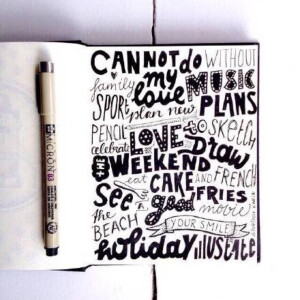 CANNOT do WITHOUT
family my MUSIC
SPORT love PLANS
plan new
PENCIL LOVE to sketch
celebrate Draw
the WEEKEND
eat CAKE AND FRENCH
See a good FRIES
the movie
BEACH YOUR SMILE
holiday illustrate
MICRON